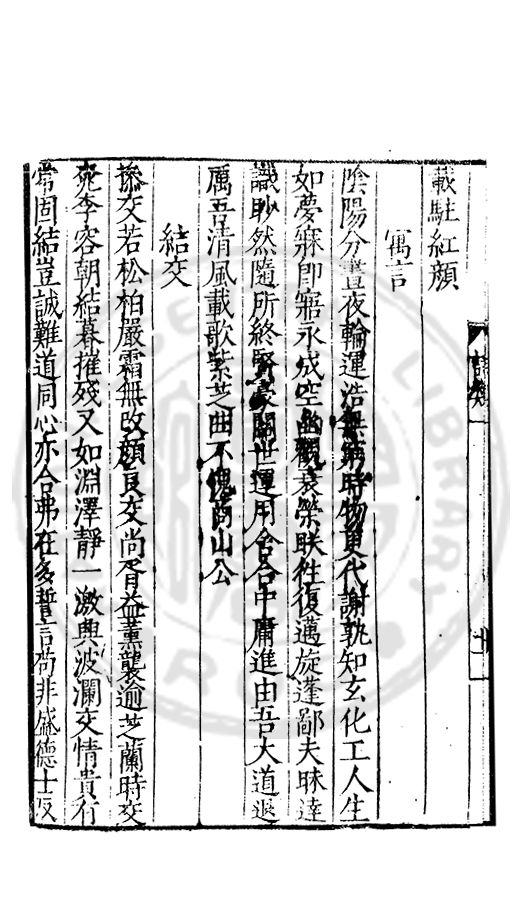 載駐紅顏
寓言
陰陽分晝夜輪運浩無窮時物更代謝孰知玄化工人生
如夢寐即寤永成空幽觀衰榮眹徃復邁旋蓬鄙夫昧達
識眇然隨所終賢豪關世運用舍合中庸進由吾大道退
厲吾清風載歌紫芝曲不愧商山公
結交
擇交若松柏嚴霜無改顏良交尚胥益薰襲逾芝蘭時交
兖李容朝結暮摧殘又如淵澤靜一激興波瀾交情貴有
常固結豈誠難道同心亦合弗在多誓言苟非盛德士反
詩類